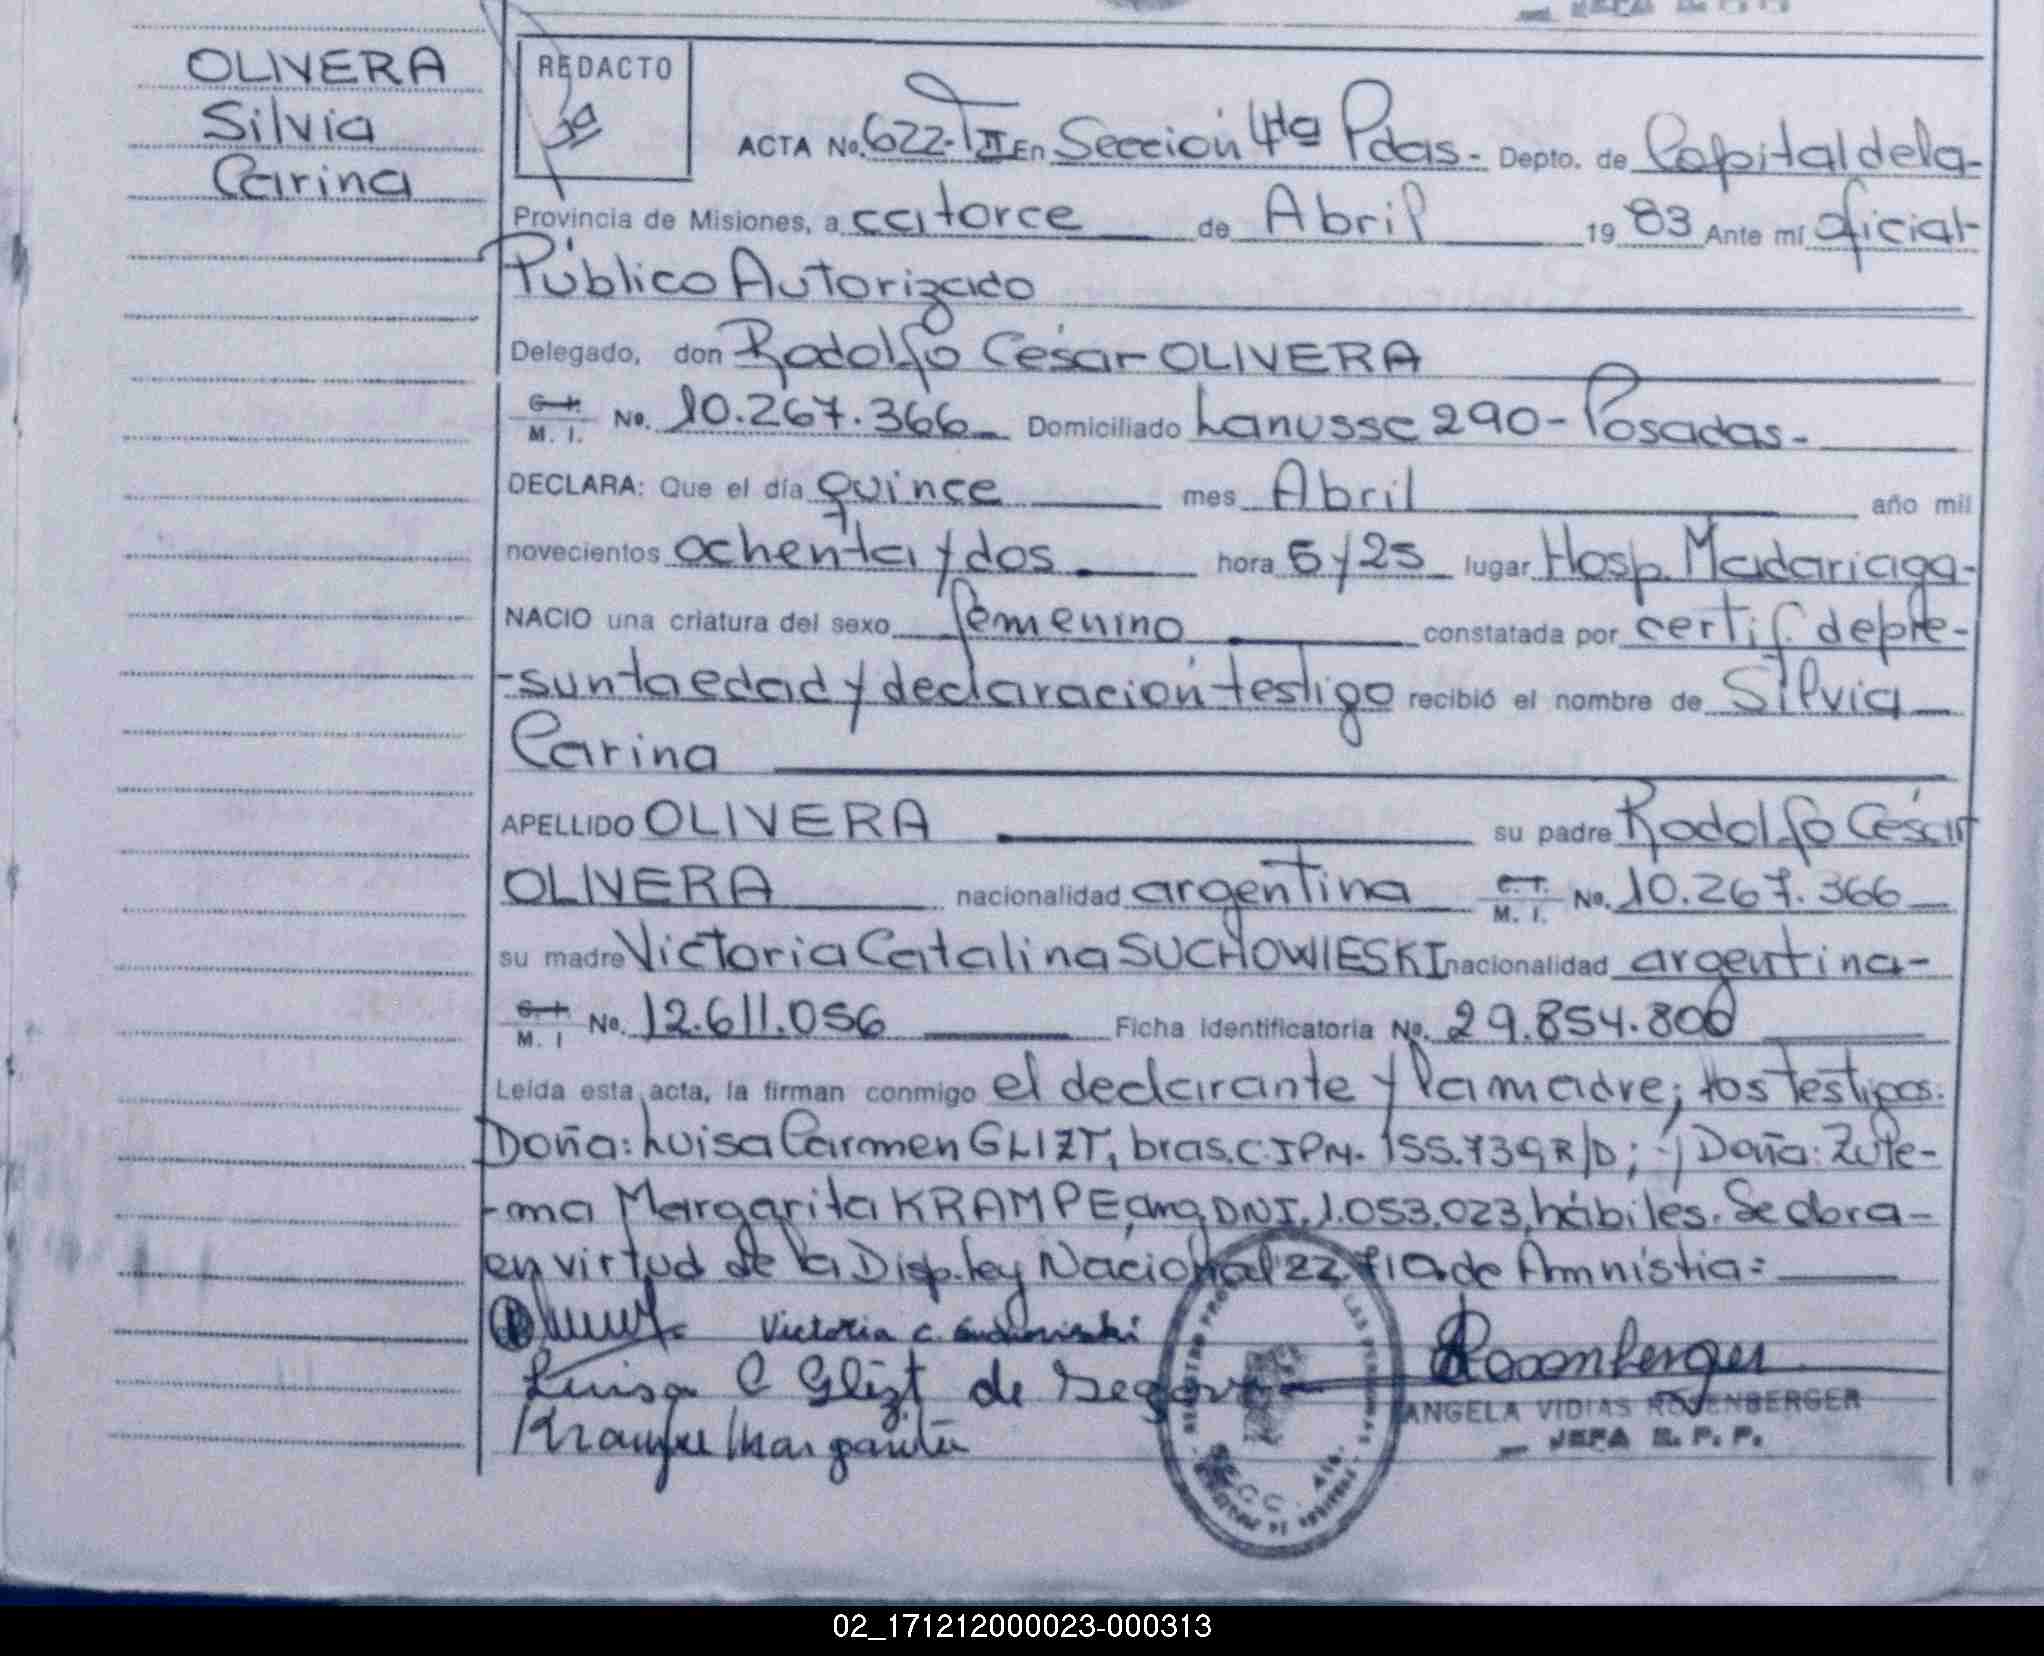 OLIVERA
Silvia
Carina
REDACTO
ACTA No. 622-T II En Sección 4ta Pdas.- Depto. de Capital de la-
Provincia de Misiones, a catorce de Abril 19 83 Ante mí oficial-
Público Autorizado
Delegado, don Rodolfo César OLIVERA
C. I. M. I. No. 10.267.366 Domiciliado Lanusse 290- Posadas.-
DECLARA: Que el día quince mes Abril año mil
novecientos ochenta y dos hora 5 y 25 lugar Hosp. Madariaga-
NACIO una criatura del sexo femenino constatada por certif. de pre-
-sunta edad y declaración testigo recibió el nombre de Silvia
Carina
APELLIDO OLIVERA su padre Rodolfo César
OLIVERA nacionalidad argentina C. I. M. I. No. 10.267.366
su madre Victoria Catalina SUCHOWIESKI nacionalidad argentina-
C. I. M. I No. 12.611.056 Ficha identificatoria No. 29.854.800
Leída esta acta, la firman conmigo el declarante y la madre; los testigos.
Doña: Luisa Carmen GLIZT, bras. C.I.P.M. 155.739 R/D; y Doña: Zule-
-ma Margarita KRAMPE, arg. DNI. 1.053.023, hábiles. Se obra-
en virtud de la Disp. Ley Nacional 22.710 de Amnistía=
Victoria C. Suchowieski
Luisa C Glizt de Segovia
Krampe Margarita
Rosenberger
ANGELA VIDIAS ROSENBERGER
JEFA R. P. P.
02_171212000023-000313